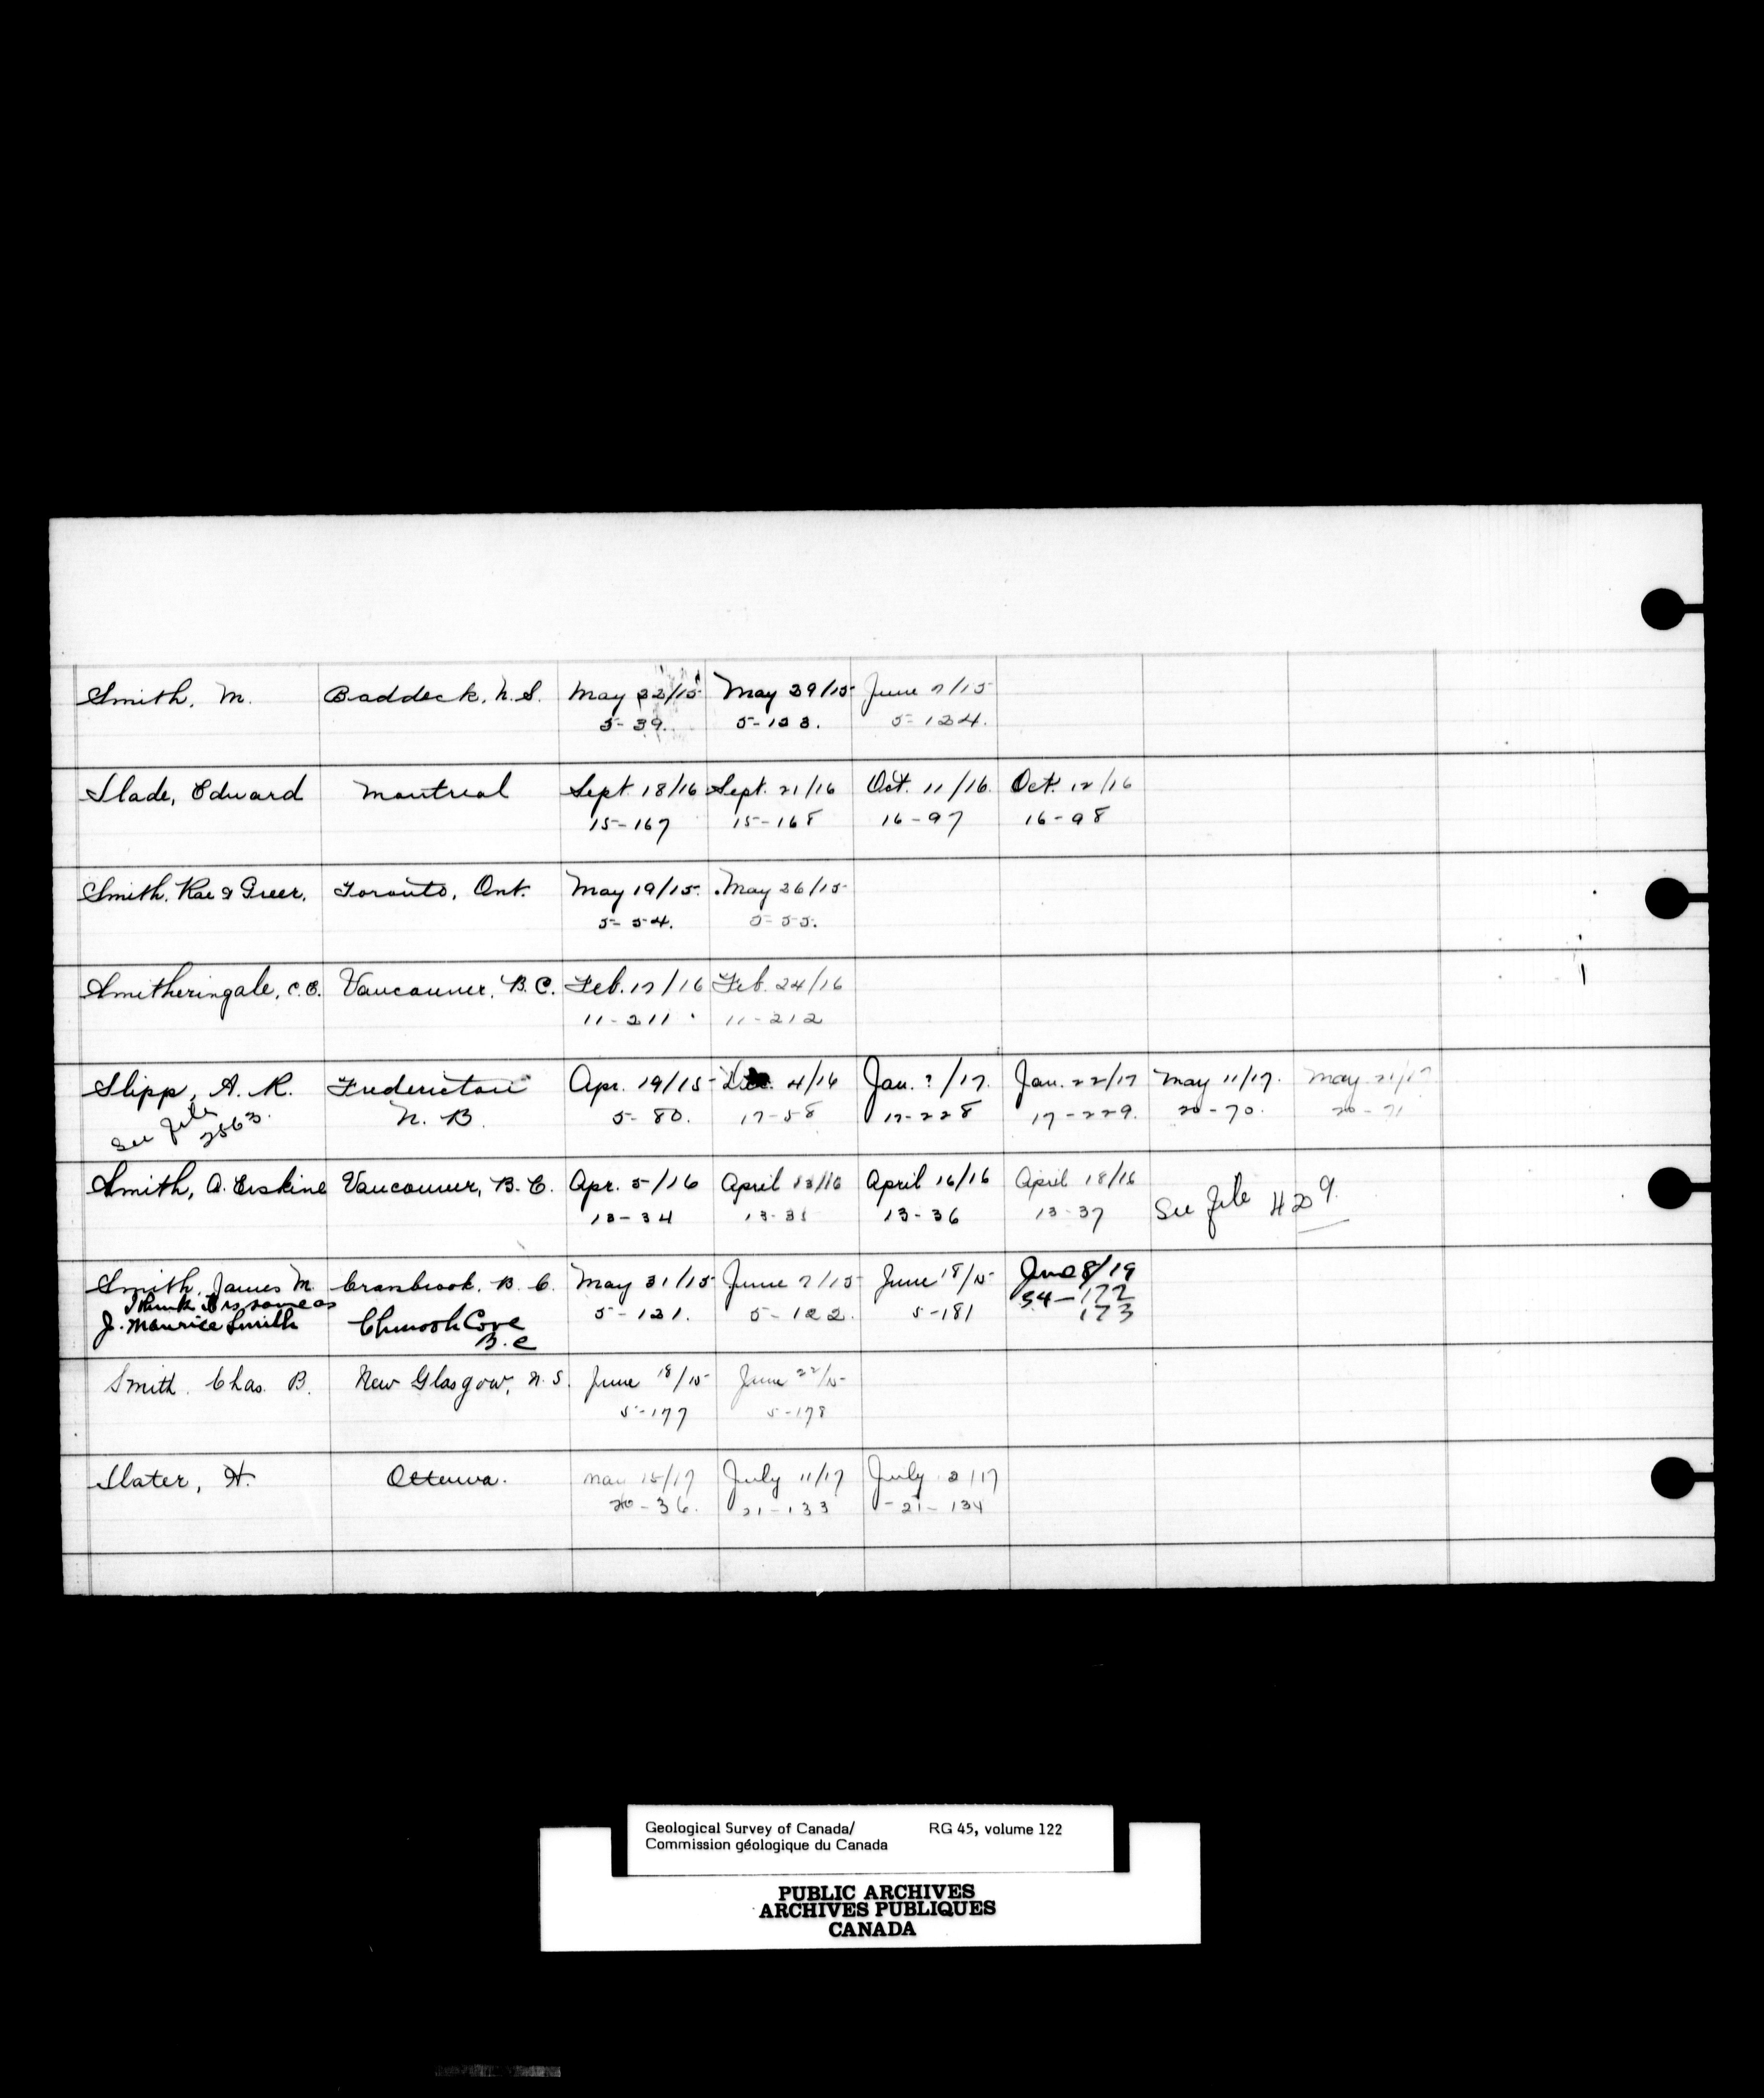 Smith, M. Baddeck, N.S. May 22/15 May 29/15 June 7/15
5-39. 5-123. 5-124.
Slade, Edward Montreal Sept. 18/16 Sept. 21/16 Oct. 11/16 Oct. 12/16
15-167 15-168 16-97 16-98
Smith, Rae & Greer, Toronto, Ont. May 19/15. May 26/15
5-54. 5-55.
Smitheringale, C.E. Vancouver, B.C. Feb. 17/16 Feb. 24/16
11-211 11-212
Slipp, A. R. Fredericton Apr. 19/15 Dec. 4/16 Jan. ?/17. Jan. 22/17 May 11/17. May 21/17
See file 2563. N. B. 5-80. 17-58 17-228 17-229. 20-70. 20-71
Smith, A. Erskine Vancouver, B.C. Apr. 5/16 April 13/16 April 16/16 April 18/16 See file 4209.
13-34 13-35 13-36 13-37
Smith, James M. Cranbrook, B.C. May 31/15 June 7/15 June 18/15 June 8/19
I think it is same as 5-121. 5-122. 5-181 54-172
J. Maurice Smith Chinook Cove 173
B.C
Smith, Chas. B. New Glasgow, N.S. June 18/15 June 22/15
5-177 5-178
Slater, H. Ottawa. May 15/17 July 11/17 July 2/17
20-36. 21-133 21-134
Geological Survey of Canada/ RG 45, volume 122
Commission géologique du Canada
PUBLIC ARCHIVES
ARCHIVES PUBLIQUES
CANADA